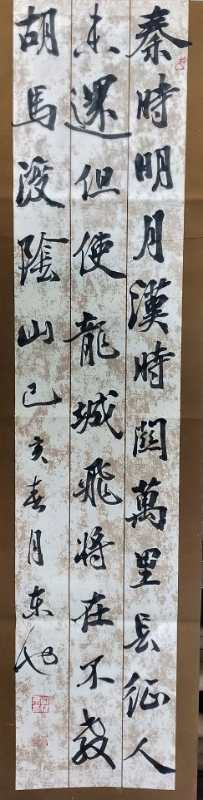 秦時明月漢時関萬里長征人
未還但使龍城飛將在不教
胡馬渡陰山己亥春月東旭